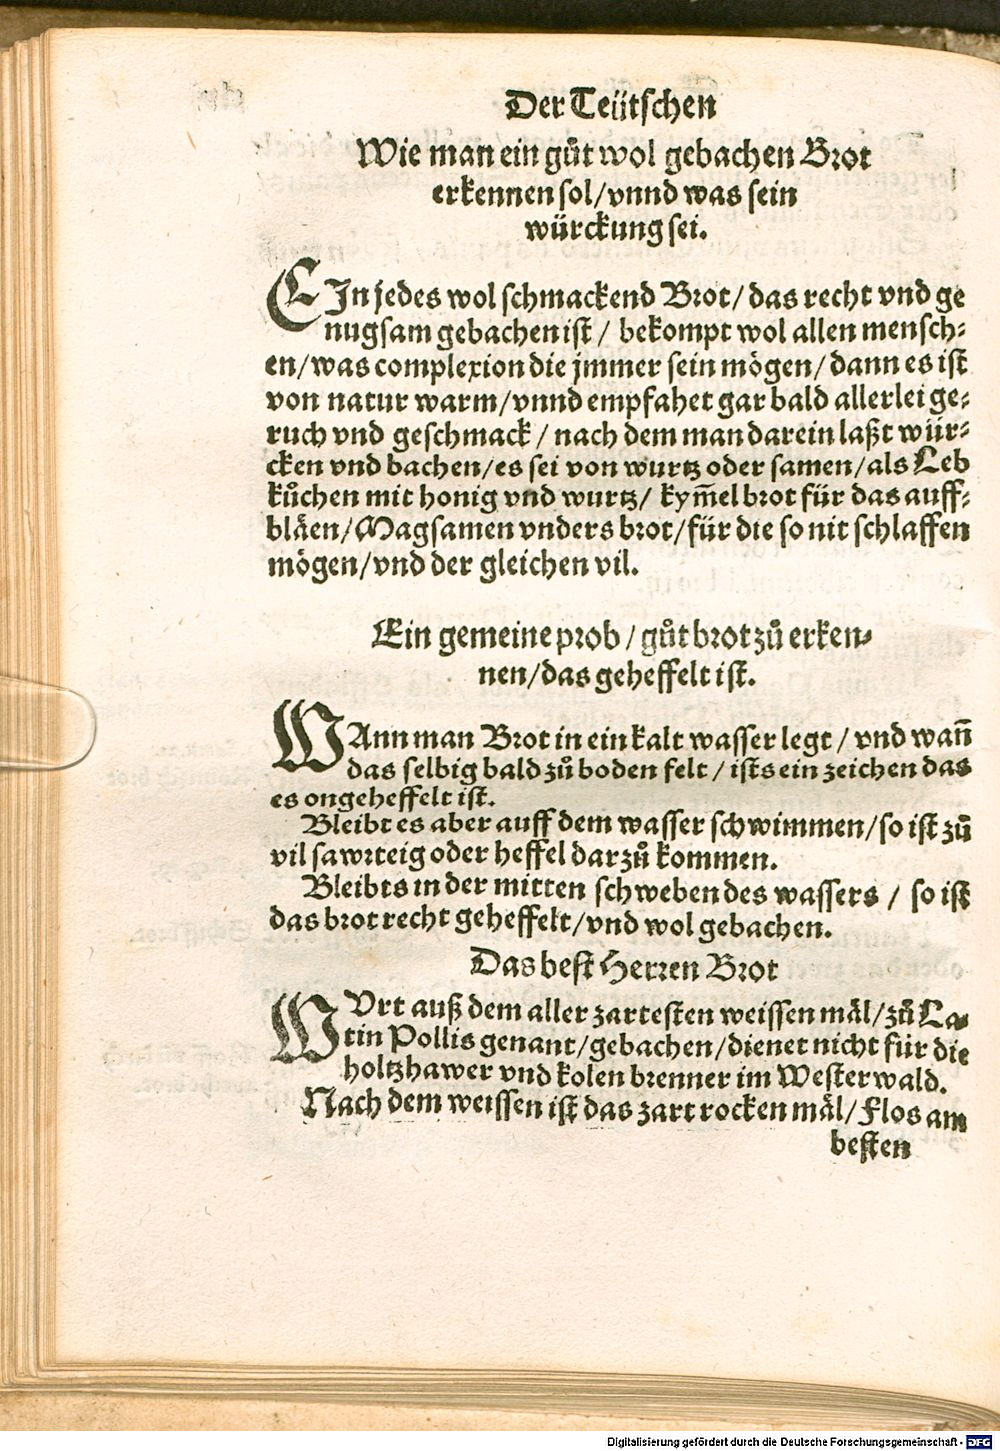 Der Teütschen
Wie man ein gůt wol gebachen Brot
erkennen sol/vnnd was sein
würckung sei.
EIn jedes wol schmackend Brot/das recht vnd ge
nugsam gebachen ist/ bekompt wol allen mensch⸗
en/was complexion die jmmer sein mögen/dann es ist
von natur warm/vnnd empfahet gar bald allerlei ge⸗
ruch vnd geschmack/nach dem man darein laßt wür⸗
cken vnd bachen/es sei von wurtz oder samen/als Leb
kůchen mit honig vnd wurtz/ kym̃el brot für das auff⸗
bläen/Magsamen vnders brot/für die so nit schlaffen
mögen/vnd der gleichen vil.
Ein gemeine prob/gůt brot zů erken⸗
nen/das geheffelt ist.
WAnn man Brot in ein kalt wasser legt/vnd wañ
das selbig bald zů boden felt/ists ein zeichen das
es ongeheffelt ist.
Bleibt es aber auff dem wasser schwimmen/so ist zů
vil sawrteig oder heffel darzů kommen.
Bleibts in der mitten schweben des wassers/ so ist
das brot recht geheffelt/vnd wol gebachen.
Das best Herren Brot
WVrt auß dem aller zartesten weissen mäl/zů La⸗
tin Pollis genant/gebachen/dienet nicht für die
holtzhawer vnd kolen brenner im Westerwald.
Nach dem weissen ist das zart rocken mäl/Flos am
besten
Digitalisierung gefördert durch die Deutsche Forschungsgemeinschaft - DFG